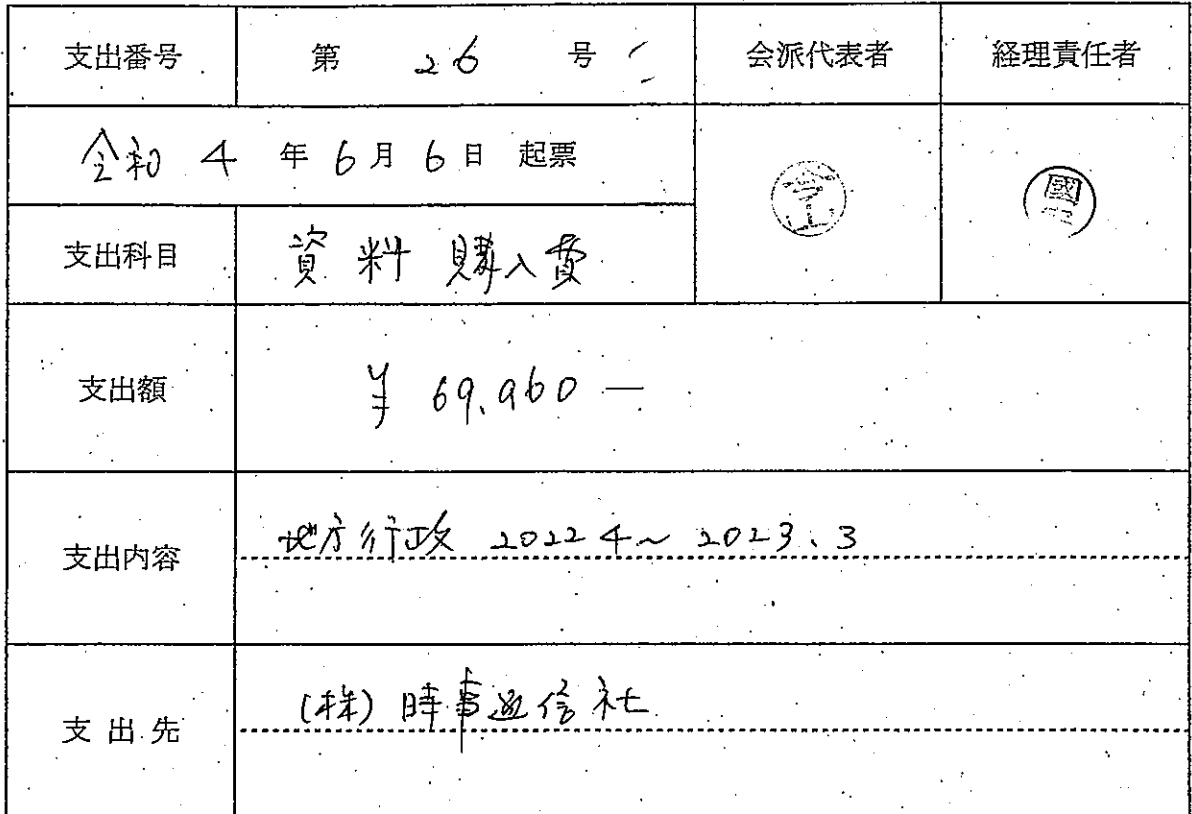 支出番号 第 26 号 会派代表者 経理責任者
令和 4 年 6 月 6 日 起票
支出科目 資料購入費
支出額 ¥ 69,960 ―
支出内容 地方行政 2022 4〜2023.3
支出先 (株)時事通信社